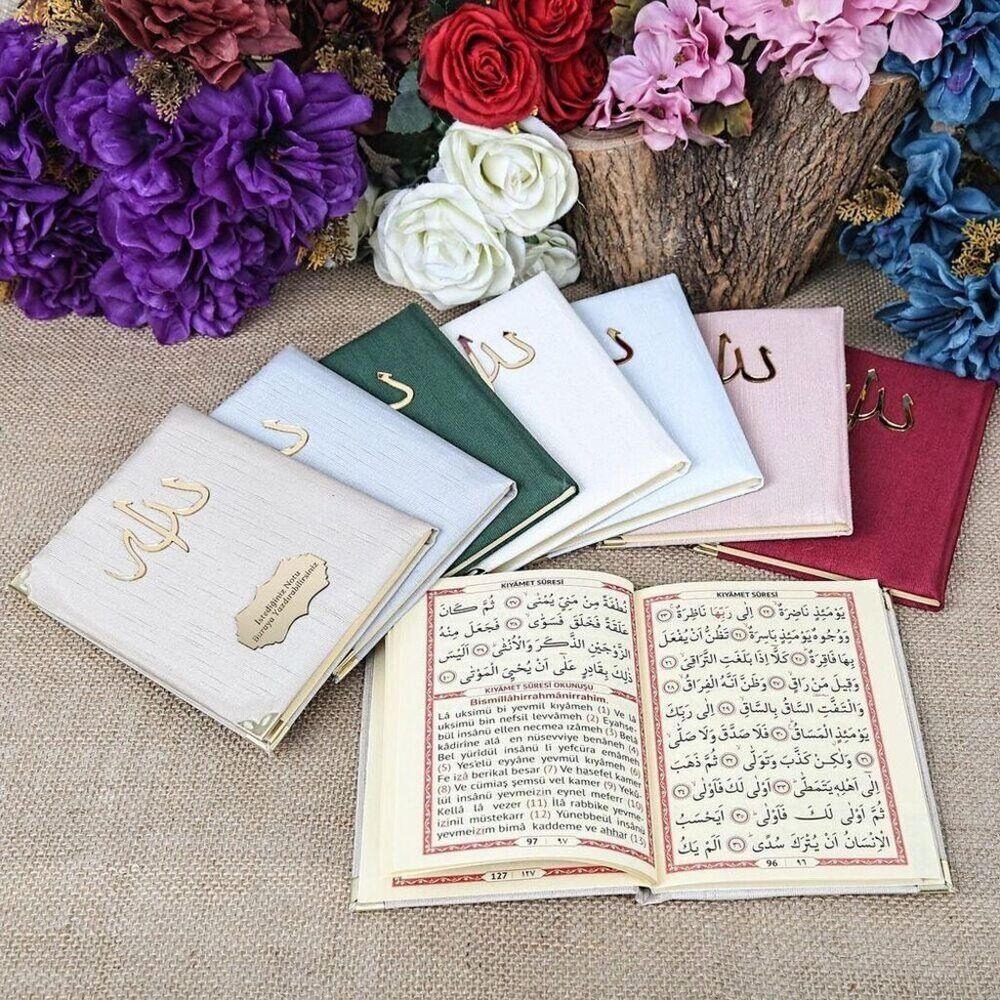 الله
İstediğiniz Notu
Buraya Yazdırabilirsiniz
KIYÂMET SÛRESİ
نُطْفَةً مِنْ مَنِيٍّ يُمْنٰىۙ ﴿٣٧﴾ ثُمَّ كَانَ
عَلَقَةً فَخَلَقَ فَسَوّٰىۙ ﴿٣٨﴾ فَجَعَلَ مِنْهُ
الزَّوْجَيْنِ الذَّكَرَ وَالْاُنْثٰىۜ ﴿٣٩﴾ اَلَيْسَ
ذٰلِكَ بِقَادِرٍ عَلٰٓى اَنْ يُحْيِيَ الْمَوْتٰى ﴿٤٠﴾
KIYÂMET SÛRESİ OKUNUŞU
Bismillâhirrahmânirrahîm.
Lâ uksimü bi yevmil kıyâmeh (1) Ve lâ
uksimü bin nefsil levvâmeh (2) Eyahse-
bül insânü ellen necmea ızâmeh (3) Belâ
kâdirîne alâ en nüsevviye benâneh (4)
Bel yürîdül insânü li yefcura emâmeh
(5) Yes'elü eyyâne yevmül kıyâmeh (6)
Fe izâ berikal besar (7) Ve hasefel kamer
(8) Ve cümiaş şemsü vel kamer (9) Yekû-
lül insânü yevmeizin eynel meferr (10)
Kellâ lâ vezer (11) İlâ rabbike yevme-
izinil müstekarr (12) Yünebbeül insânü
yevmeizim bimâ kaddeme ve ahhar (13)
97 ٩٧
127 ١٢٧
KIYÂMET SÛRESİ
يَوْمَئِذٍ نَاضِرَةٌۙ ﴿٢٢﴾ اِلٰى رَبِّهَا نَاظِرَةٌۚ ﴿٢٣﴾
وَوُجُوهٌ يَوْمَئِذٍ بَاسِرَةٌۙ ﴿٢٤﴾ تَظُنُّ اَنْ يُفْعَلَ
بِهَا فَاقِرَةٌۜ ﴿٢٥﴾ كَلَّٓا اِذَا بَلَغَتِ التَّرَاقِيَۙ ﴿٢٦﴾
وَق۪يلَ مَنْ رَاقٍۙ ﴿٢٧﴾ وَظَنَّ اَنَّهُ الْفِرَاقُۙ ﴿٢٨﴾
وَالْتَفَّتِ السَّاقُ بِالسَّاقِۙ ﴿٢٩﴾ اِلٰى رَبِّكَ
يَوْمَئِذٍۨ الْمَسَاقُۜ ﴿٣٠﴾ فَلَا صَدَّقَ وَلَا صَلّٰىۙ
﴿٣١﴾ وَلٰكِنْ كَذَّبَ وَتَوَلّٰىۙ ﴿٣٢﴾ ثُمَّ ذَهَبَ
اِلٰٓى اَهْلِه۪ يَتَمَطّٰىۜ ﴿٣٣﴾ اَوْلٰى لَكَ فَاَوْلٰىۙ ﴿٣٤﴾
ثُمَّ اَوْلٰى لَكَ فَاَوْلٰىۜ ﴿٣٥﴾ اَيَحْسَبُ
الْاِنْسَانُ اَنْ يُتْرَكَ سُدًىۜ ﴿٣٦﴾ اَلَمْ يَكُ
96 ٩٦